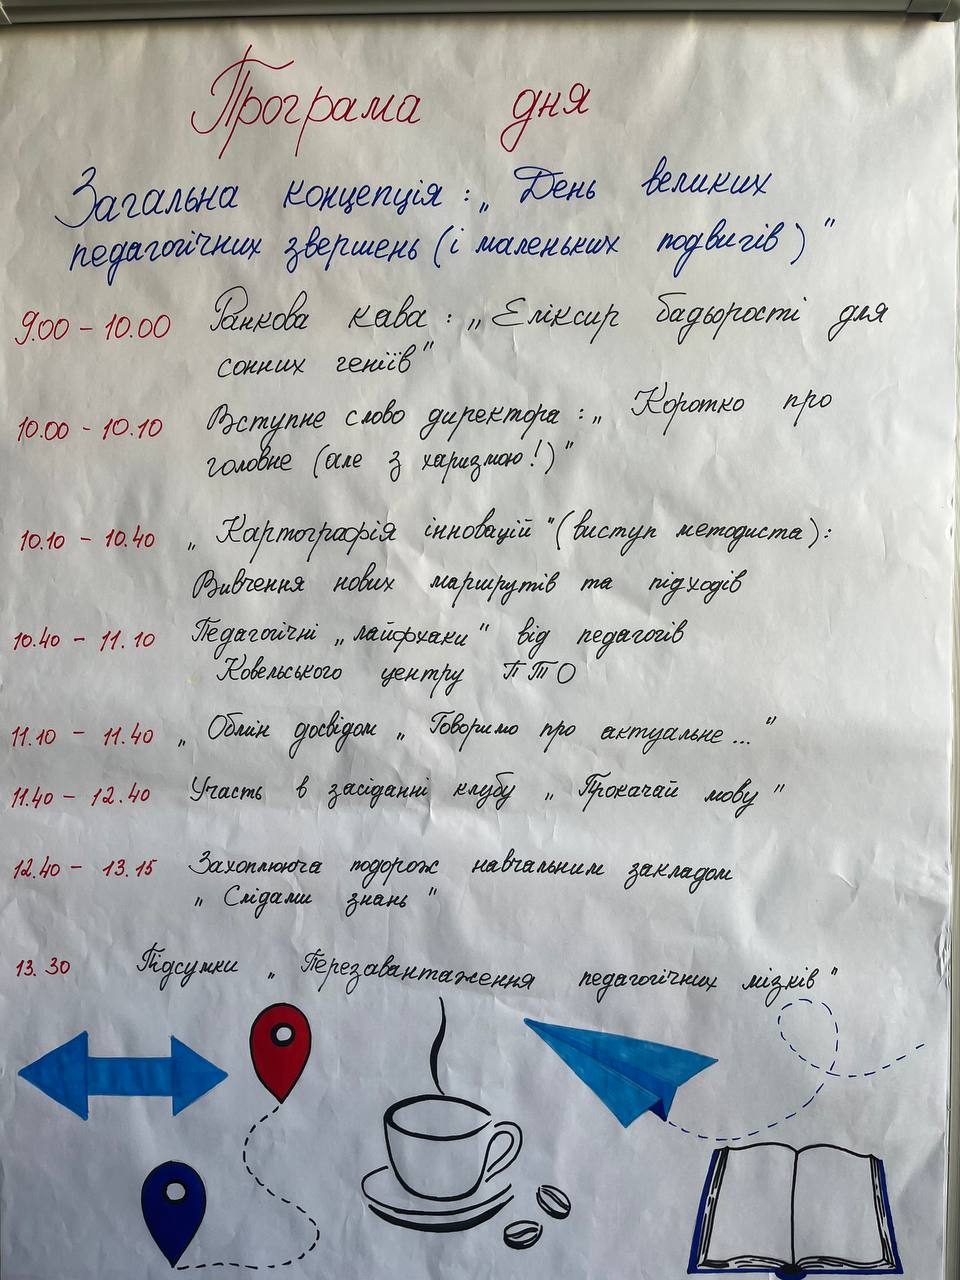 Програма дня
Загальна концепція : „ День великих
педагогічних звершень ( і маленьких подвигів ) "
9.00 – 10.00 Ранкова кава : „ Еліксир бадьорості для
сонних геніїв "
10.00 - 10.10 Вступне слово директора : „ Коротко про
головне (але з харизмою ! ) "
10.10 – 10.40 „ Картографія інновацій " ( виступ методиста ) :
Вивчення нових маршрутів та підходів
10.40 – 11.10 Педагогічні „ лайфхаки " від педагогів
Ковельського центру ПТО
11.10 – 11.40 „ Обмін досвідом „ Говоримо про актуальне ... "
11.40 – 12.40 Участь в засіданні клубу „ Прокачай мову "
12.40 – 13.15 Захоплююча подорож навчальним закладом
„ Слідами знань "
13.30 Підсумки „ Перезавантаження педагогічних мізків "